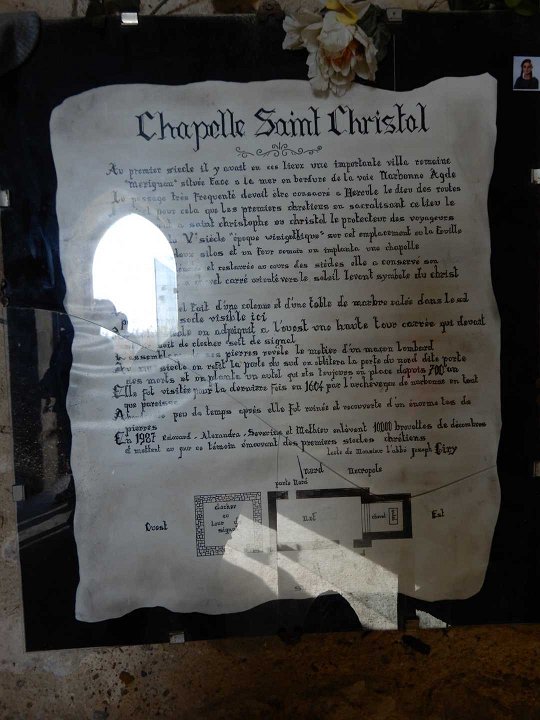 Chapelle Saint Christol
Au premier siecle il y avait en ces lieux une importante villa romaine
"Meriquum" située face a la mer en bordure de la voie Narbonne Agde
Le passage très frequenté devait être consacré a Hercule le dieu des routes
pour cela que les premiers chrétiens en sacralisant ce lieu le
a saint christophe ou christol le protecteur des voyageurs
Vº siècle "époque winigothique" sur cet emplacement ou la fouille
deux silos et un four romain on implanta une chapelle
et restaurée au cours des siècles elle a conservé son
carré orienté vers le soleil levant symbole du christ
fait d'une colonne et d'une table de marbre calée dans le sol
socle visible ici
on adjoignit a l'ouest une haute tour carrée qui devait
soit de clocher soit de signal
pierres révèle le metier d'un maçon lombard
siecle on refit la porte du sud on oblitera la porte du nord dite porte
des morts et on planta un autel qui est toujours en place depuis 700 an
Elle fut visitée pour la derniere fois en 1604 par l'archeveque de narbonne en tant
que paroisse
peu de temps après elle fut ruinée et recouverte d'un énorme tas de
pierres
En 1987 Edouard - Alexandra - Severine et Mathieu enlèvent 10000 brouettes de décombres
et mettent au jour ce témoin émouvant des premiers siecles chrétiens
texte de Monsieur l'abbé Joseph Giry
nord Necropole
porte Nord
Ouest clocher ou tour Nef choeur Est